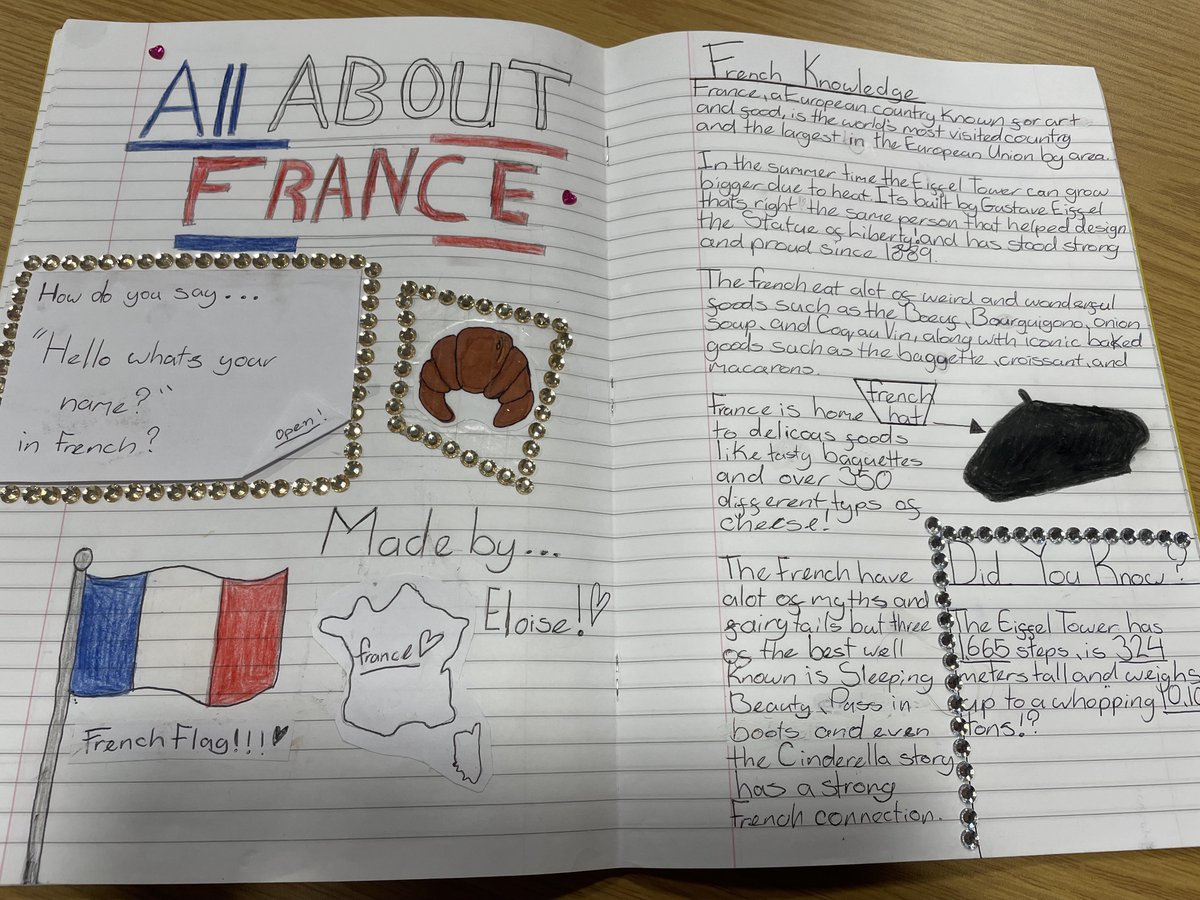 All ABOUT
FRANCE
How do you say...
"Hello whats your
name?"
in french?
open!
Made by...
Eloise!
france
French Flag!!!
French Knowledge
France, a European country known for art
and food, is the world's most visited country
and the largest in the European Union by area.
In the summer time the Eiffel Tower can grow
bigger due to heat. Its built by Gustave Eiffel
thats right the same person that helped design
the Statue of Liberty! and has stood strong
and proud since 1889.
The french eat alot of weird and wonderful
foods such as the Boeuf, Bourguigono, onion
soup, and Coq au Vin, along with iconic baked
goods such as the baggette, croissant, and
macarons.
french
hat
France is home
to delicous foods
like tasty baguettes
and over 350
different typs of
cheese!
The French have
alot of myths and
fairy tails but three
of the best well
known is Sleeping
Beauty, Puss in
boots and even
the Cinderella story
has a strong
French connection.
Did You Know?
The Eiffel Tower has
1,665 steps, is 324
meters tall and weighs
up to a whopping
tons!?